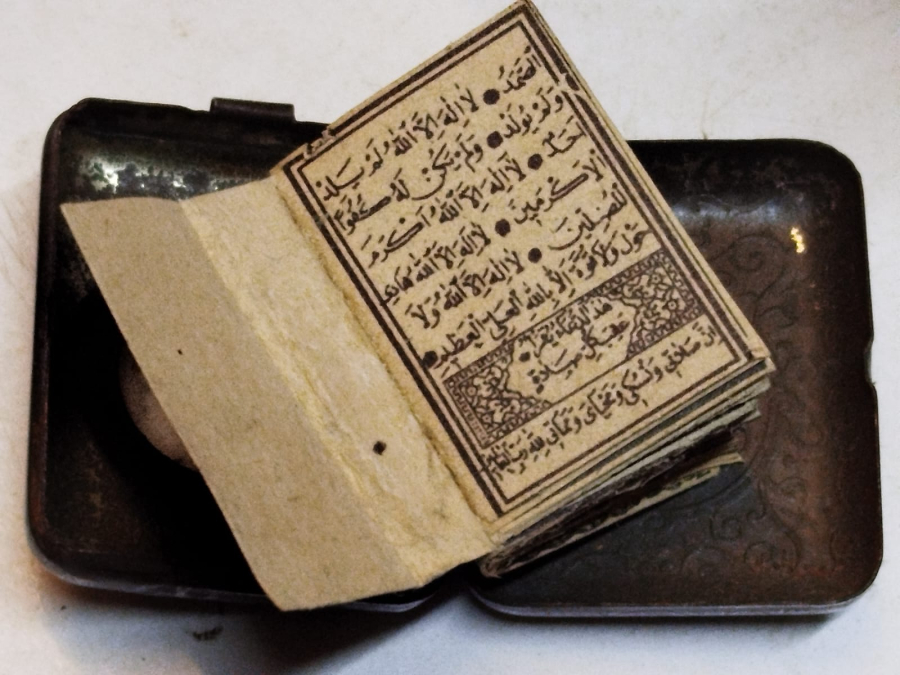 الصَّمَدُ ● لَا اِلٰهَ اِلَّا اللهُ لَمْ يَلِدْ
وَلَمْ يُولَدْ ● وَلَمْ يَكُنْ لَهُ كُفُوًا
اَحَدٌ ● لَا اِلٰهَ اِلَّا اللهُ اَكْرَمُ
الْاَكْرَمِينَ ● لَا اِلٰهَ اِلَّا اللهُ
● لَا اِلٰهَ اِلَّا اللهُ وَلَا
حَوْلَ وَلَا قُوَّةَ اِلَّا بِاللهِ الْعَلِيِّ الْعَظِيمِ ●
الدعاء يقرء
عقب كل
اِنَّ صَلَاتِي وَنُسُكِي وَمَحْيَايَ وَمَمَاتِي لِلّٰهِ رَبِّ الْعَالَمِينَ